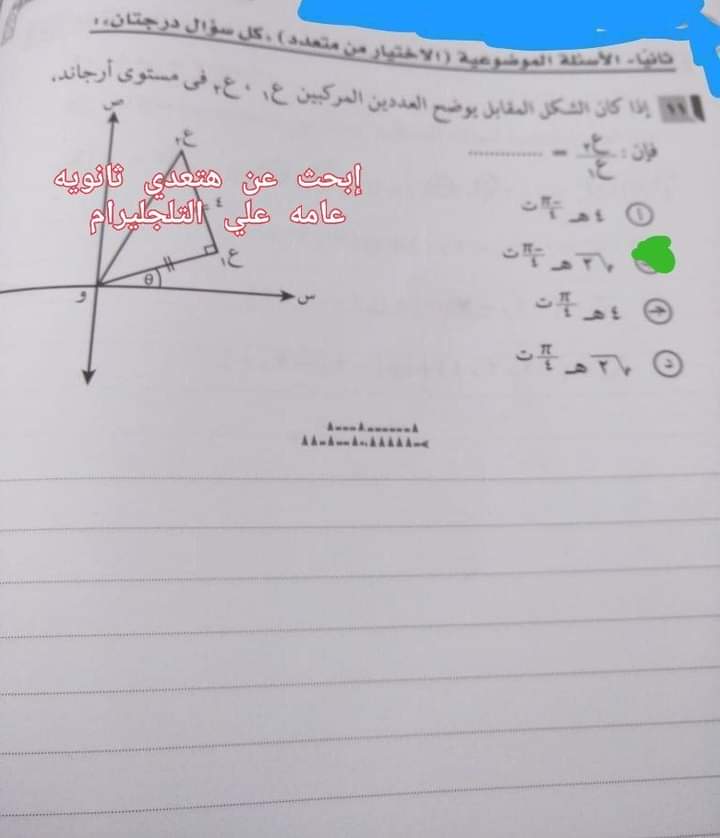 ثانيًا- الأسئلة الموضوعية (الاختيار من متعدد) «كل سؤال درجتان»:
١١ إذا كان الشكل المقابل يوضح العددين المركبين ع١ ، ع٢ فى مستوى أرجاند،
فإن : ع٢/ع١ = ............
أ ٤ هـ^(-π/٤ ت)
√٢ هـ^(-π/٤ ت)
ج ٤ هـ^(π/٤ ت)
د √٢ هـ^(π/٤ ت)
ص
ع٢
إبحث عن هتعدي ثانويه
عامه علي التلجليرام
٤
ع١
θ
و
س